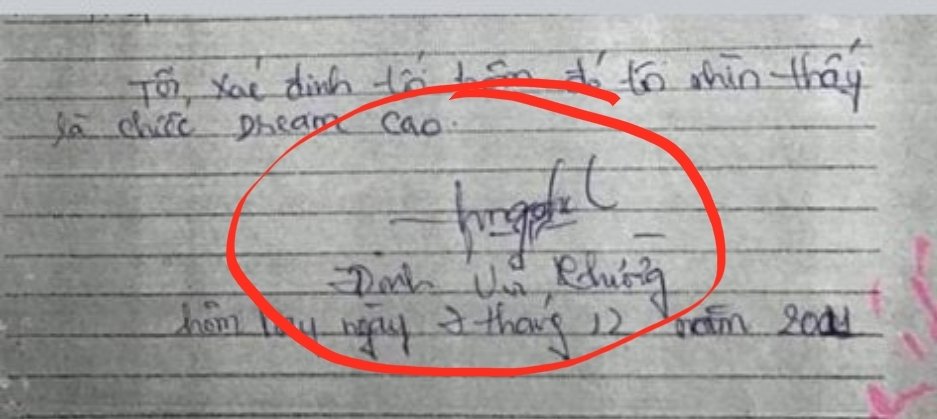 Tôi xác định tối hôm đó tôi nhìn thấy
là chiếc Dream Cao.
Đinh Vũ Khường
hôm nay ngày 7 tháng 12 năm